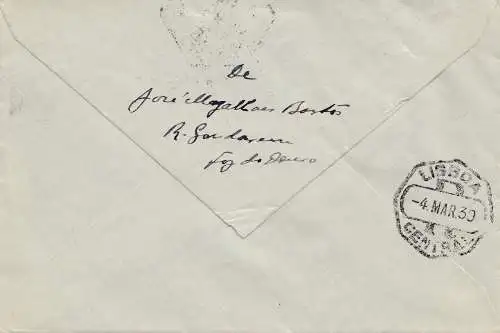 De
José Magalhães Bastos
R. Gondarem
Foz do Douro
LISBOA
-4. MAR. 30
CENTRAL